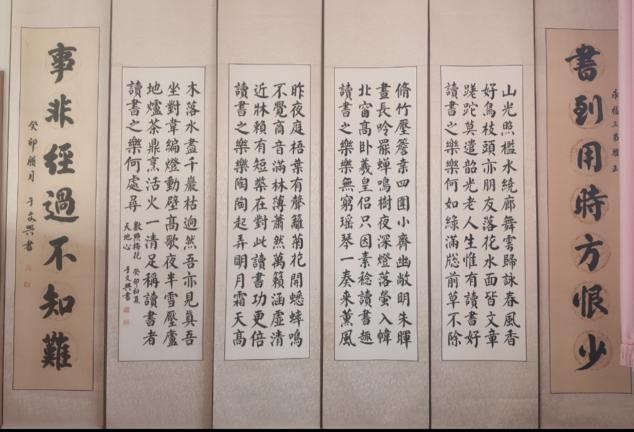 書到用時方恨少
山光照檻水繞廊舞雩歸詠春風香
好鳥枝頭亦朋友落花水面皆文章
蹉跎莫遣韶光老人生惟有讀書好
讀書之樂樂何如綠滿窓前草不除
脩竹壓簷桒四圍小齊幽敞明朱暉
晝長吟罷蟬鳴樹夜深燈落螢入幃
北窗高卧羲皇侶只因素稔讀書趣
讀書之樂樂無窮瑤琴一奏來薰風
昨夜庭梧葉有聲籬菊花開蟋蟀鳴
不覺商音滿林薄蕭然萬籟涵虛清
近牀賴有短檠在對此讀書功更倍
讀書之樂樂陶陶起弄明月霜天高
木落水盡千巖枯迥然吾亦見真吾
坐對韋編燈動壁高歌夜半雪壓廬
地爐茶鼎烹活火一清足稱讀書者
讀書之樂樂何處尋
數點梅花
天地心
癸卯初夏
于文興書
事非經過不知難
癸卯臘月
于文興書